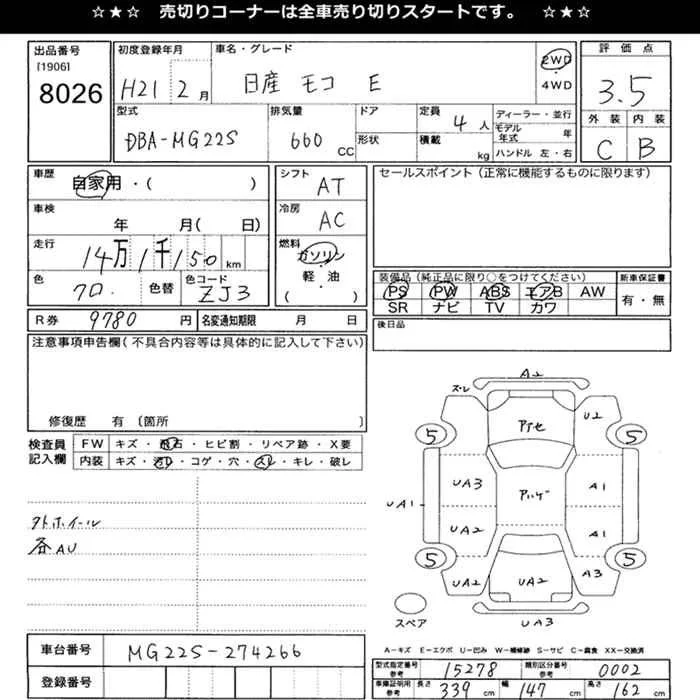 ☆★☆ 売切りコーナーは全車売り切りスタートです。 ☆★☆
出品番号 初度登録年月 車名・グレード 評価点
[1906]
8026 H21 2月 日産 モコ E 2WD 4WD 3.5
外装 内装
C B
型式 排気量 ドア 定員 ディーラー・並行
DBA-MG22S 660 CC 形状 4人 積載 kg モデル年式 年 ハンドル 左・右
車歴 自家用・( )
シフト AT
セールスポイント(正常に機能するものに限ります)
車検 年 月( 日)
冷房 AC
走行 14万1千150km
燃料 ガソリン 軽・油 ( )
色 クロ 色替 色コード ZJ3
装備品(純正品に限り○をつけてください) 新車保証書
PS PW ABS エアB AW 有・無
SR ナビ TV カワ
R券 9780円 名変通知期限 月 日
後日品
注意事項申告欄(不具合内容等は具体的に記入して下さい)
修復歴 有 〔箇所 〕
検査員記入欄 FW キズ・飛石・ヒビ割・リペア跡・X要
内装 キズ・汚レ・コゲ・穴・スレ・キレ・破レ
外ホイール
各AU
A2
ズレ
アトセ U2
5 5
UA3 A1
UA1 アハゲ
UA2 A1
5 5
UA2 UA2 A3
スペア UA3
A-キズ E-エクボ U-凹み W-補修跡 S-サビ C-腐食 XX-交換済
車台番号 MG22S-274266
登録番号
型式指定番号 参考 15278 類別区分番号 参考 0002
車庫証明用 参考 長さ 339 cm 幅 147 cm 高さ 162 cm